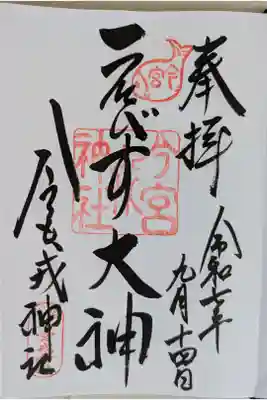 奉拝
令和七年
九月十四日
ゑびす大神
今宮
神社
戎神社